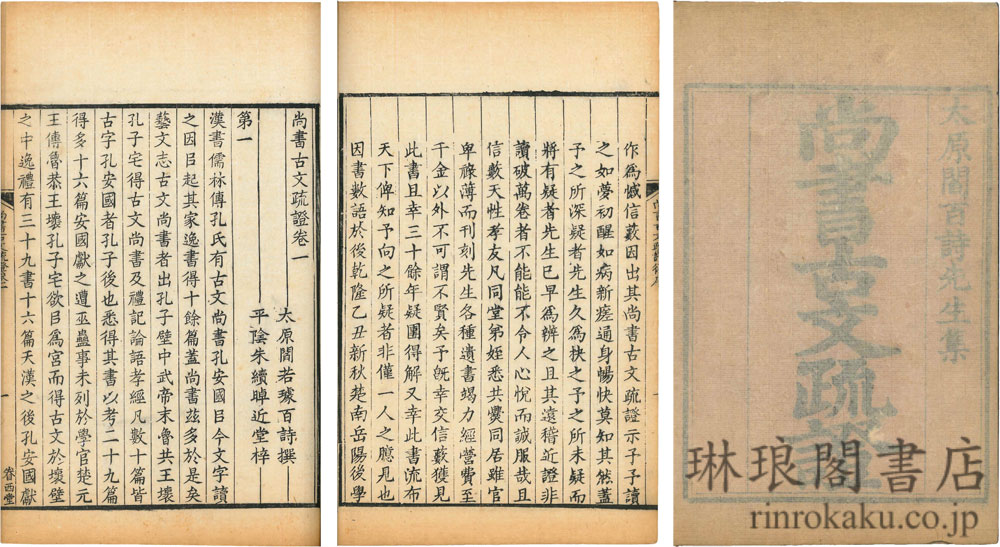 太原閻百詩先生集
尚書古文疏證
作爲憾信藪因出其尚書古文疏證示予予讀
之如夢初醒如病新瘥通身暢快莫知其然蓋
予之所深疑者先生久爲抉之予之所未疑而
將有疑者先生已早爲辨之且其遠稽近證非
讀破萬卷者不能能不令人心悅而誠服哉且
信藪天性孝友凡同堂弟姪悉共爨同居雖官
卑祿薄而刊刻先生各種遺書竭力經營費
千金以外不可謂不賢矣予旣幸交信藪獲見
此書且幸三十餘年疑團得解又幸此書流布
天下俾知予向之所疑者非僅一人之臆見也
因書數語於後乾隆乙丑新秋楚南岳陽後學
尚書古文疏證卷一
太原閻若璩百詩撰
平陰朱續晫近堂梓
第一
漢書儒林傳孔氏有古文尚書孔安國㠯今文字讀
之因㠯起其家逸書得十餘篇蓋尚書茲多於是矣
藝文志古文尚書者出孔子壁中武帝末魯共王壞
孔子宅得古文尚書及禮記論語孝經凡數十篇皆
古字孔安國者孔子後也悉得其書以考二十九篇
得多十六篇安國獻之遭巫蠱事未列於學官楚元
王傳魯恭王壞孔子宅欲㠯爲宮而得古文於壞壁
之中逸禮有三十九書十六篇天漢之後孔安國獻
眷西堂
琳琅閣書店
rinrokaku.co.jp